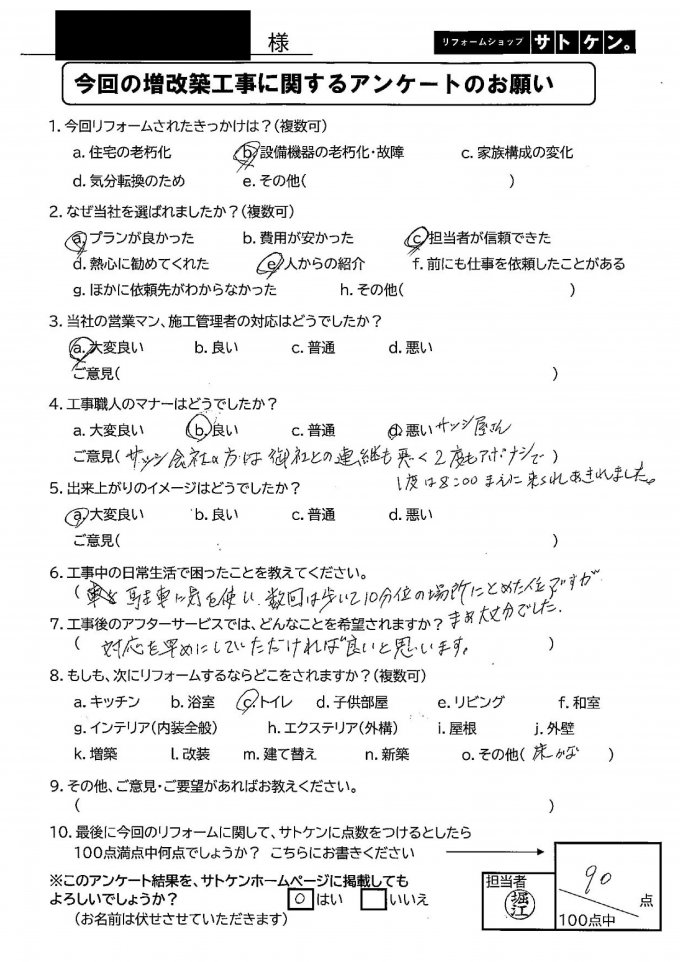 様
リフォームショップ サトケン。
今回の増改築工事に関するアンケートのお願い
1. 今回リフォームされたきっかけは？（複数可）
a. 住宅の老朽化 b. 設備機器の老朽化・故障 c. 家族構成の変化
d. 気分転換のため e. その他( )
2. なぜ当社を選ばれましたか？（複数可）
a. プランが良かった b. 費用が安かった c. 担当者が信頼できた
d. 熱心に勧めてくれた e. 人からの紹介 f. 前にも仕事を依頼したことがある
g. ほかに依頼先がわからなかった h. その他( )
3. 当社の営業マン、施工管理者の対応はどうでしたか？
a. 大変良い b. 良い c. 普通 d. 悪い
ご意見( )
4. 工事職人のマナーはどうでしたか？
a. 大変良い b. 良い c. 普通 d. 悪い サッシ屋さん
ご意見( サッシ会社の方は御社との連継も悪く2度もアポナシで )
1度は8:00まえに来られあきれました。
5. 出来上がりのイメージはどうでしたか？
a. 大変良い b. 良い c. 普通 d. 悪い
ご意見( )
6. 工事中の日常生活で困ったことを教えてください。
( 駐車に気を使い、数回は歩いて10分位の場所にとめた位ですが
まあ大丈夫でした。
7. 工事後のアフターサービスでは、どんなことを希望されますか？
( 対応を早めにしていただければ良いと思います。 )
8. もしも、次にリフォームするならどこをされますか？（複数可）
a. キッチン b. 浴室 c. トイレ d. 子供部屋 e. リビング f. 和室
g. インテリア（内装全般） h. エクステリア（外構） i. 屋根 j. 外壁
k. 増築 l. 改装 m. 建て替え n. 新築 o. その他( 床かな )
9. その他、ご意見・ご要望があればお教えください。
( )
10. 最後に今回のリフォームに関して、サトケンに点数をつけるとしたら
100点満点中何点でしょうか？ こちらにお書きください
※このアンケート結果を、サトケンホームページに掲載しても
よろしいでしょうか？ ○ はい いいえ
（お名前は伏せさせていただきます）
担当者
堀江
90
点
100点中